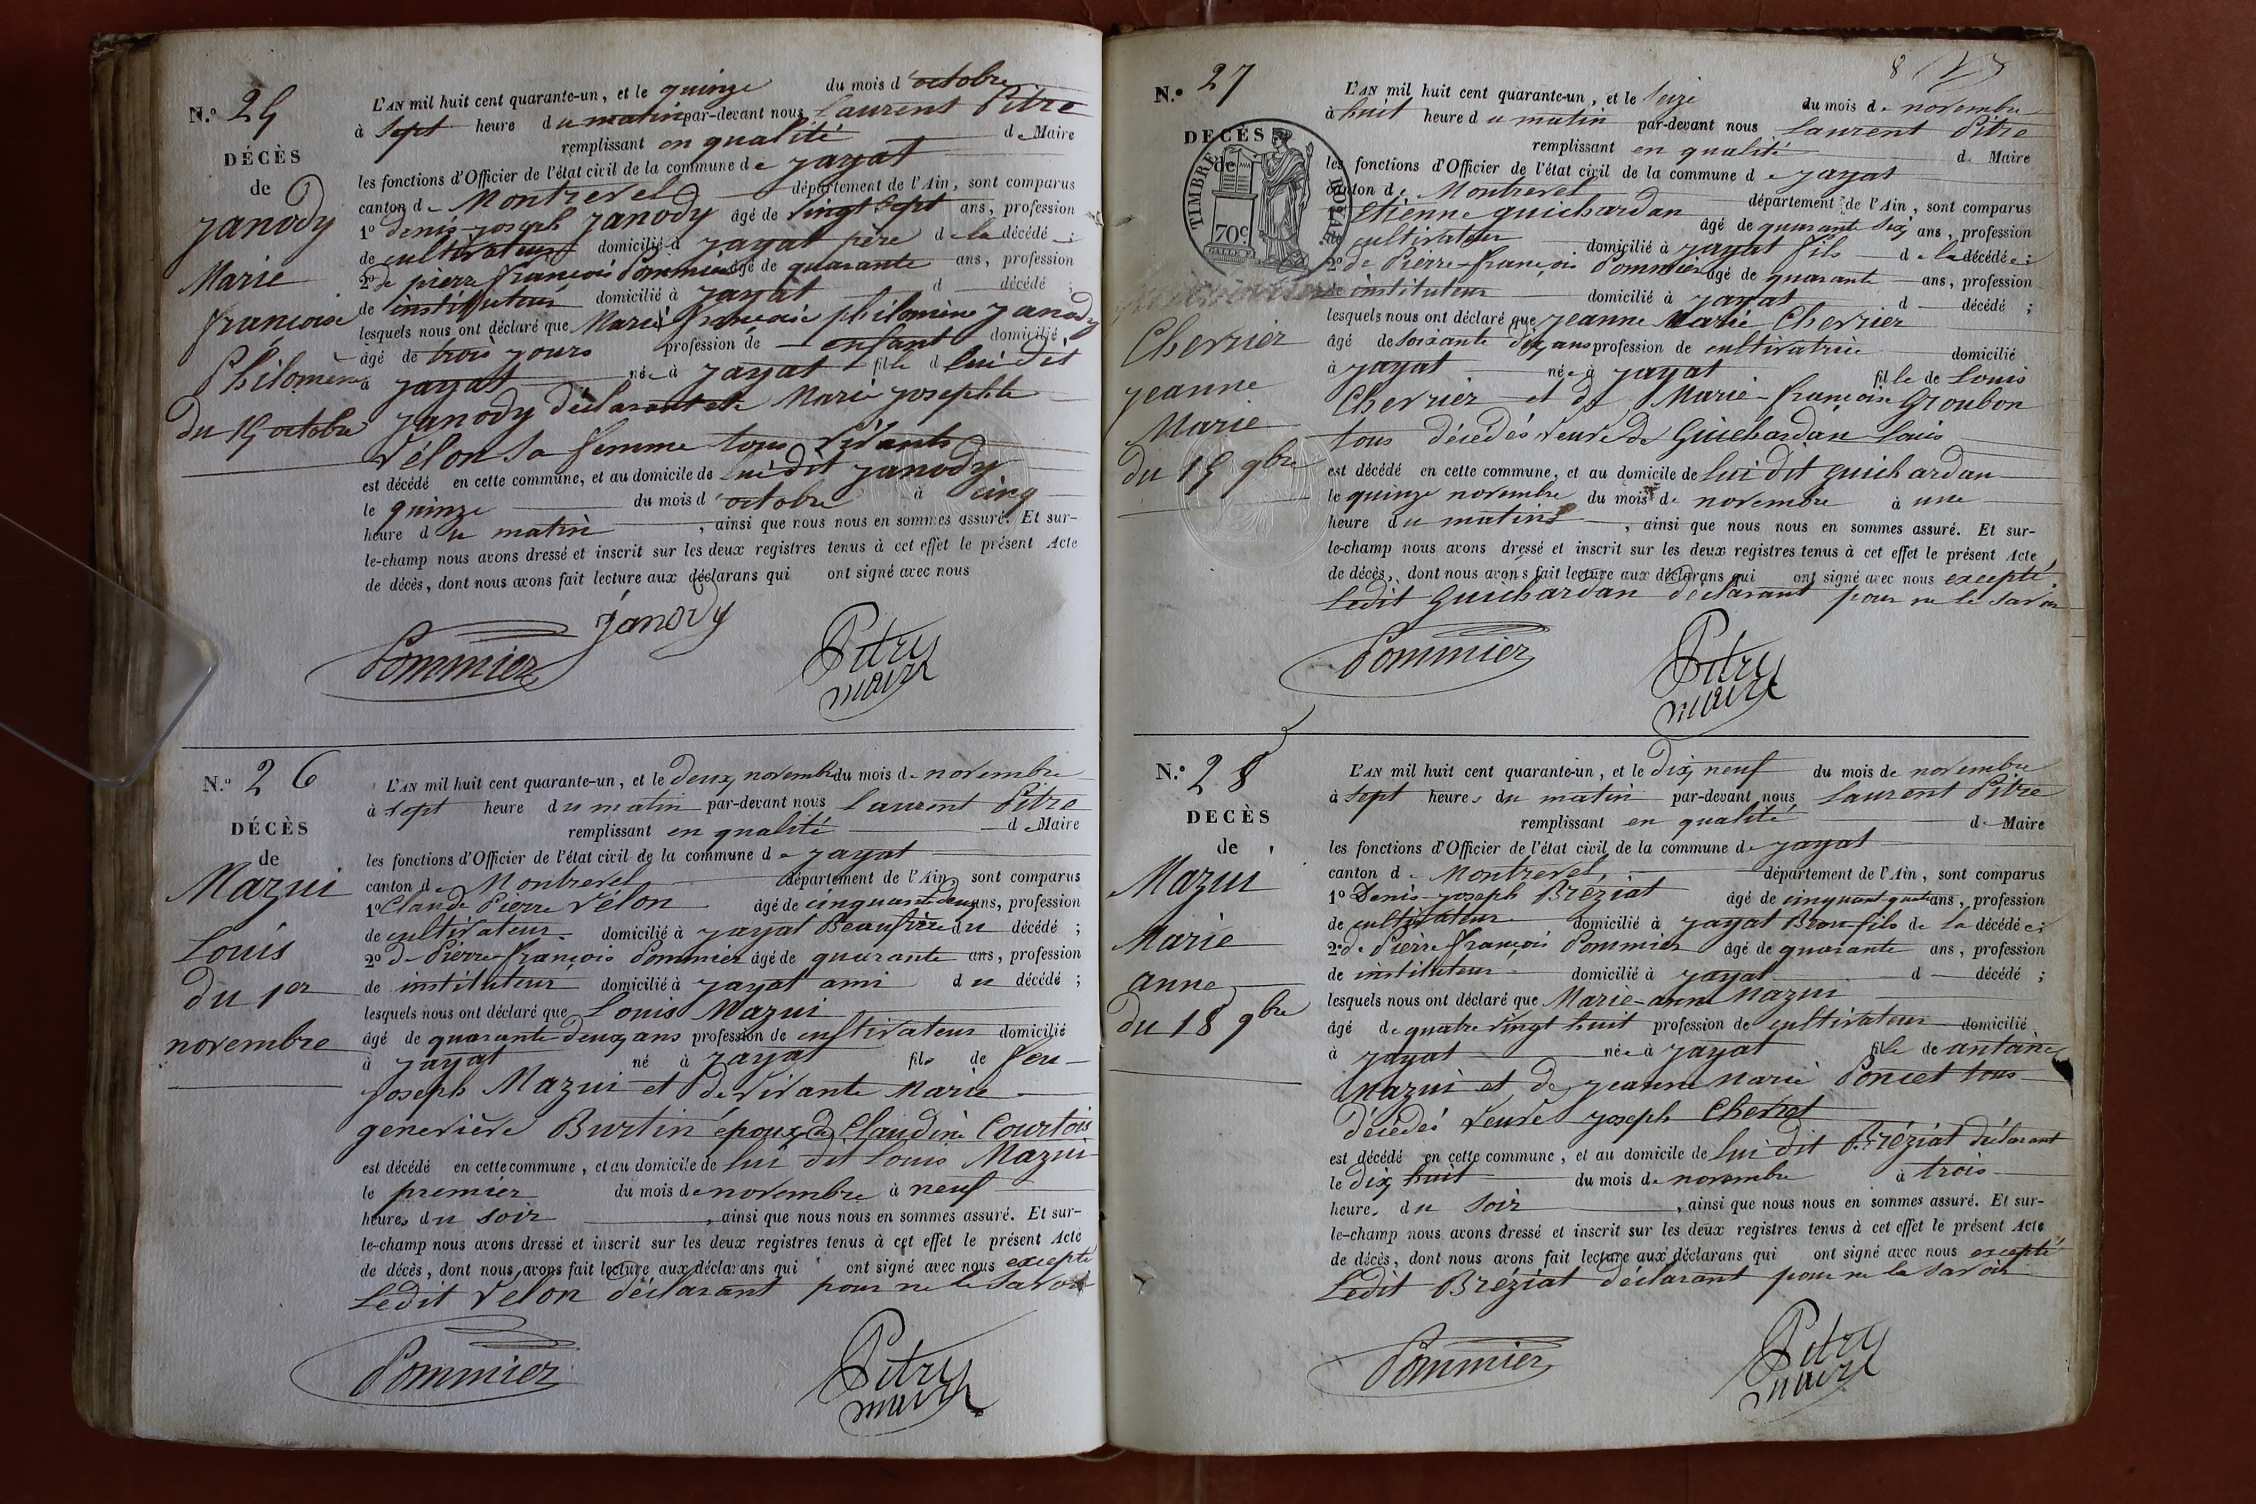 N.° 25
DÉCÈS
de
Janody
Marie
françoise
Philomène
du 15 octobre
L'AN mil huit cent quarante-un, et le quinze du mois d'octobre
à sept heure du matin par-devant nous Laurent Pitre
remplissant en qualité de Maire
les fonctions d'Officier de l'état civil de la commune de Jayat
canton de Montrevel département de l'Ain, sont comparus
1° denis-joseph Janody âgé de vingt sept ans, profession
de cultivateur domicilié à Jayat père de la décédée ;
2° de pierre françois Pommier âgé de quarante ans, profession
de instituteur domicilié à Jayat d décédé ;
lesquels nous ont déclaré que Marie françoise philomène Janody
âgé de trois jours profession de enfant domicilié
à Jayat née à Jayat fille d lui dit
Janody déclarant et de Marie josephte
Vélon sa femme tous vivants
est décédé en cette commune, et au domicile de lui dit Janody
le quinze du mois d'octobre à cinq
heure du matin , ainsi que nous nous en sommes assuré. Et sur-
le-champ nous avons dressé et inscrit sur les deux registres tenus à cet effet le présent Acte
de décès, dont nous avons fait lecture aux déclarans qui ont signé avec nous
Janody
Pommier Pitre
maire
N.° 26
DÉCÈS
de
Mazui
Louis
du 1er
novembre
L'AN mil huit cent quarante-un, et le deux novembre du mois de novembre
à sept heure du matin par-devant nous Laurent Pitre
remplissant en qualité de Maire
les fonctions d'Officier de l'état civil de la commune de Jayat
canton de Montrevel département de l'Ain, sont comparus
1° Claude Pierre Vélon âgé de cinquante deux ans, profession
de cultivateur domicilié à Jayat Beaufrère du décédé ;
2° de Pierre-françois Pommier âgé de quarante ans, profession
de instituteur domicilié à Jayat ami du décédé ;
lesquels nous ont déclaré que Louis Mazui
âgé de quarante deux ans profession de cultivateur domicilié
à Jayat né à Jayat fils de feu
Joseph Mazui et de vivante Marie
genevière Burtin époux de Claudine Courtois
est décédé en cette commune, et au domicile de lui dit Louis Mazui
le premier du mois de novembre à neuf
heures du soir , ainsi que nous nous en sommes assuré. Et sur-
le-champ nous avons dressé et inscrit sur les deux registres tenus à cet effet le présent Acte
de décès, dont nous avons fait lecture aux déclarans qui ont signé avec nous excepté
Ledit Vélon déclarant pour ne le savoir
Pommier Pitre
maire
8
N.° 27
DECÈS
de
TIMBRE ROYAL
70c
Chevrier
Jeanne
Marie
du 15 9bre
L'AN mil huit cent quarante-un, et le seize du mois de novembre
à huit heure du matin par-devant nous Laurent Pitre
remplissant en qualité de Maire
les fonctions d'Officier de l'état civil de la commune de Jayat
canton de Montrevel département de l'Ain, sont comparus
1° Etienne guichardan âgé de quarante six ans, profession
de cultivateur domicilié à Jayat fils de la décédée ;
2° de Pierre-françois Pommier âgé de quarante ans, profession
de instituteur domicilié à Jayat d décédé ;
lesquels nous ont déclaré que Jeanne Marie Chevrier
âgé de soixante dix ans profession de cultivatrice domicilié
à Jayat née à Jayat fille de Louis
Chevrier et de Marie-françoise Groubon
tous décédés veuve de Guichardan Louis
est décédé en cette commune, et au domicile de lui dit guichardan
le quinze novembre du mois de novembre à une
heure du matin , ainsi que nous nous en sommes assuré. Et sur-
le-champ nous avons dressé et inscrit sur les deux registres tenus à cet effet le présent Acte
de décès, dont nous avons fait lecture aux déclarans qui ont signé avec nous excepté
Ledit Guichardan déclarant pour ne le savoir
Pommier Pitre
maire
N.° 28
DECÈS
de
Mazui
Marie
anne
du 18 9bre
L'AN mil huit cent quarante-un, et le dix neuf du mois de novembre
à sept heures du matin par-devant nous Laurent Pitre
remplissant en qualité de Maire
les fonctions d'Officier de l'état civil de la commune de Jayat
canton de Montrevel département de l'Ain, sont comparus
1° Denis-joseph Bréziat âgé de cinquant quatre ans, profession
de cultivateur domicilié à Jayat Beau-fils de la décédée ;
2° de Pierre françois Pommier âgé de quarante ans, profession
de instituteur domicilié à Jayat d décédé ;
lesquels nous ont déclaré que Marie-anne Mazui
âgé de quatre vingt huit profession de cultivateur domicilié
à Jayat née à Jayat fille de antoine
Mazui et de Jeanne Marie Poncet tous
décédés veuve joseph Chevret
est décédé en cette commune, et au domicile de lui dit Bréziat déclarant
le dix huit du mois de novembre à trois
heure du soir , ainsi que nous nous en sommes assuré. Et sur-
le-champ nous avons dressé et inscrit sur les deux registres tenus à cet effet le présent Acte
de décès, dont nous avons fait lecture aux déclarans qui ont signé avec nous excepté
Ledit Bréziat déclarant pour ne le savoir
Pommier Pitre
maire